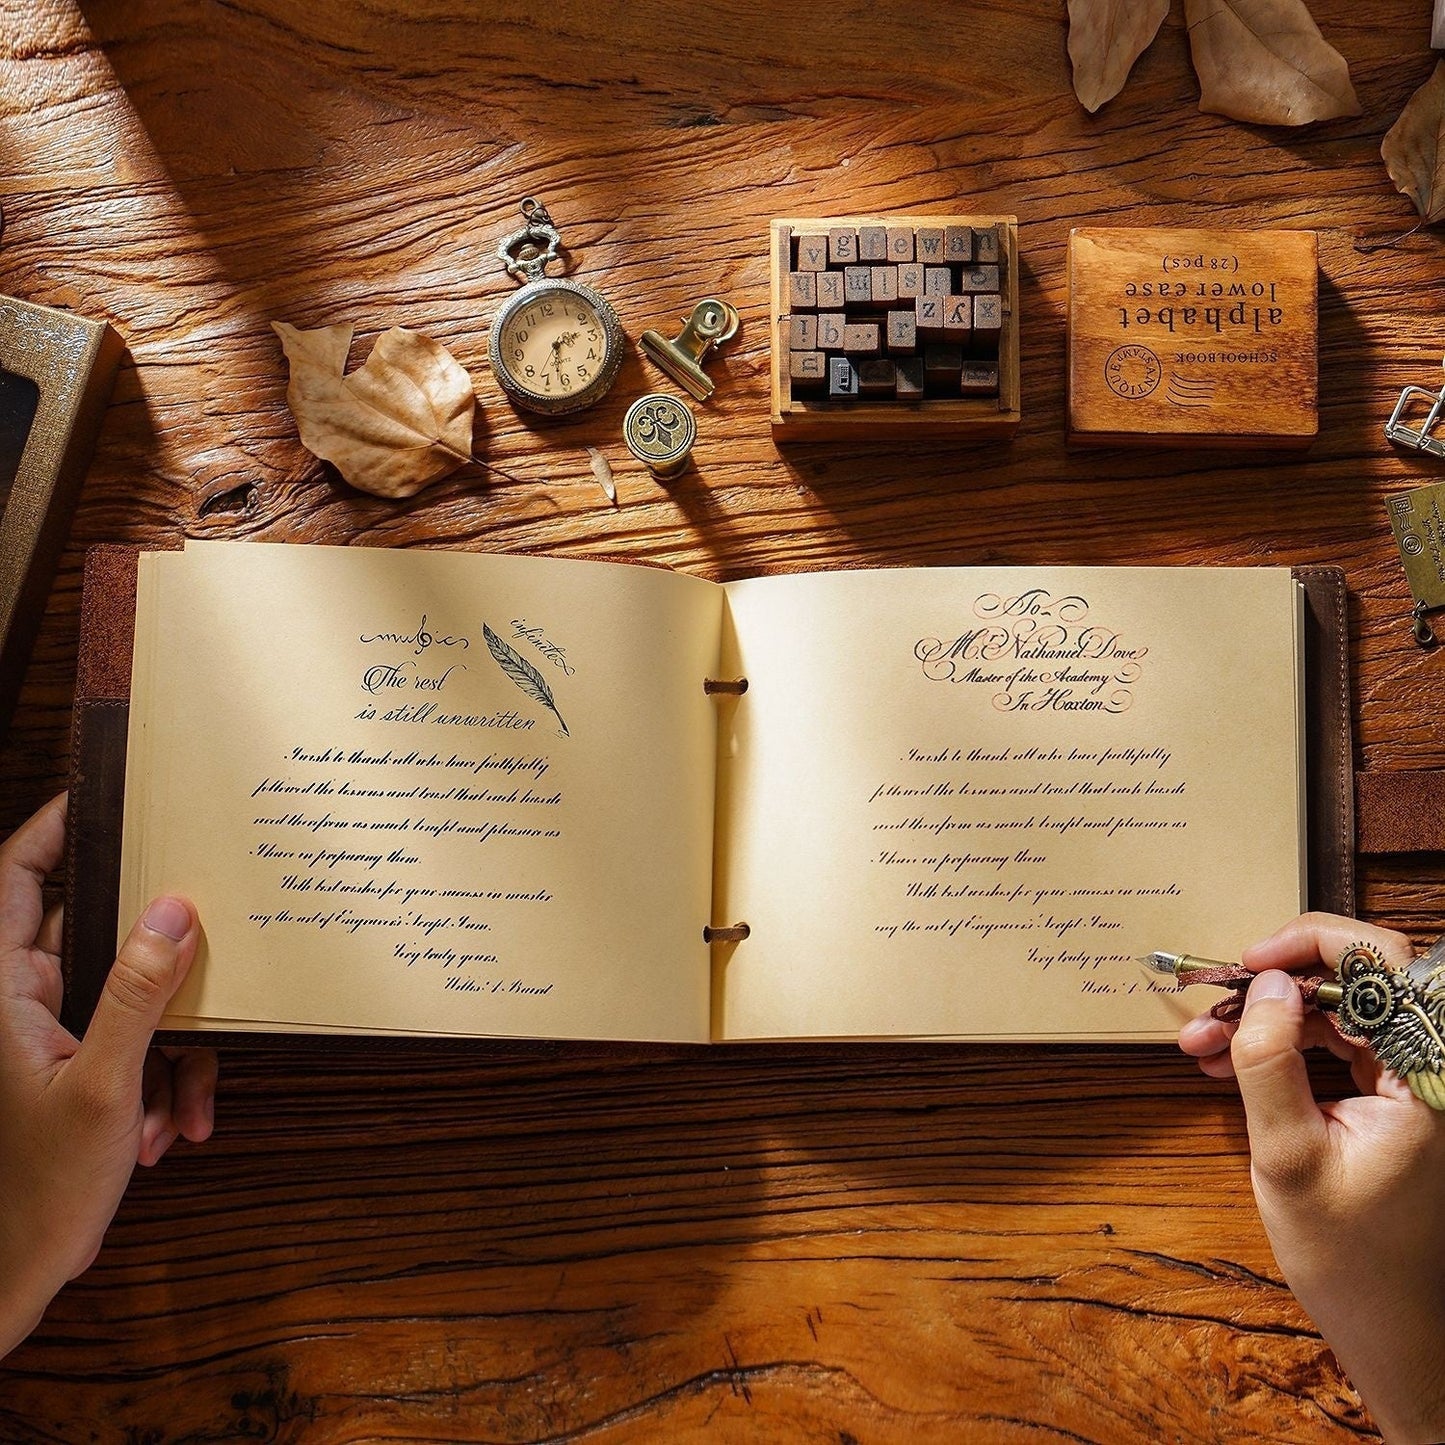 12
1
2
3
4
5
6
7
8
9
10
11
QUARTZ
v g f e w a n
q k m l s
! b . . r z y x
alphabet
lower case
(28 pcs)
SCHOOLBOOK
ANTIQUE STAMP
music
infinite
The rest
is still unwritten
I wish to thank all who have faithfully
followed the lessons and trust that each has de
rived therefrom as much benefit and pleasure as
I have in preparing them.
With best wishes for your success in master
ing the art of Engravers' Script, I am.
Very truly yours.
Baird
To
Mr. Nathaniel Dove
Master of the Academy
In Hoxton
I wish to thank all who have faithfully
followed the lessons and trust that each has de
rived therefrom as much benefit and pleasure as
I have in preparing them
With best wishes for your success in master
ing the art of Engravers' Script, I am.
Very truly yours
Baird